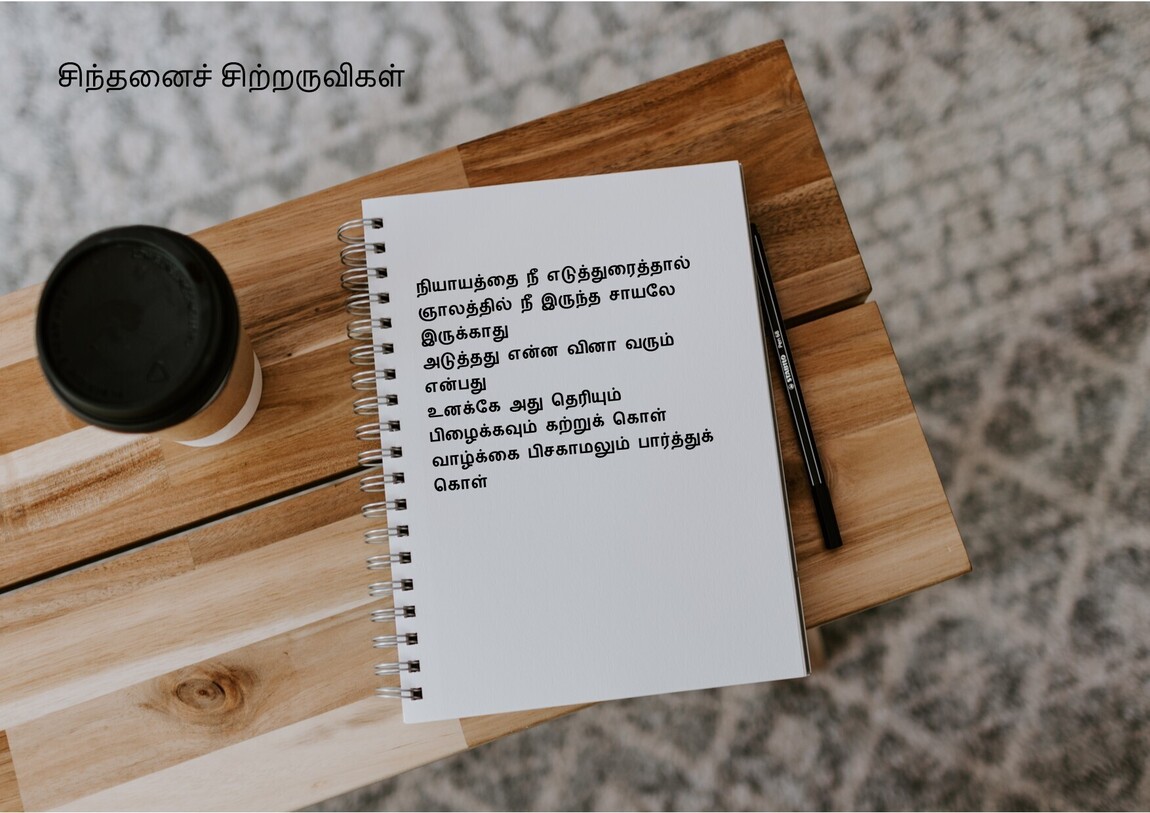 சிந்தனைச் சிற்றருவிகள்
நியாயத்தை நீ எடுத்துரைத்தால்
ஞாலத்தில் நீ இருந்த சாயலே
இருக்காது
அடுத்தது என்ன வினா வரும்
என்பது
உனக்கே அது தெரியும்
பிழைக்கவும் கற்றுக் கொள்
வாழ்க்கை பிசகாமலும் பார்த்துக்
கொள்
STABILO